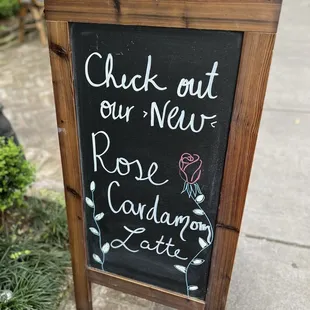 Check out
our New
Rose
Cardamom
Latte